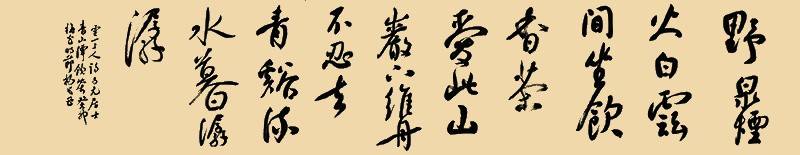 野泉煙
火白雲
間坐飲
香茶
愛此山
巖下維舟
不忍去
青谿流
水暮潺
潺
人詩与元居士
青山潭飲茶癸卯